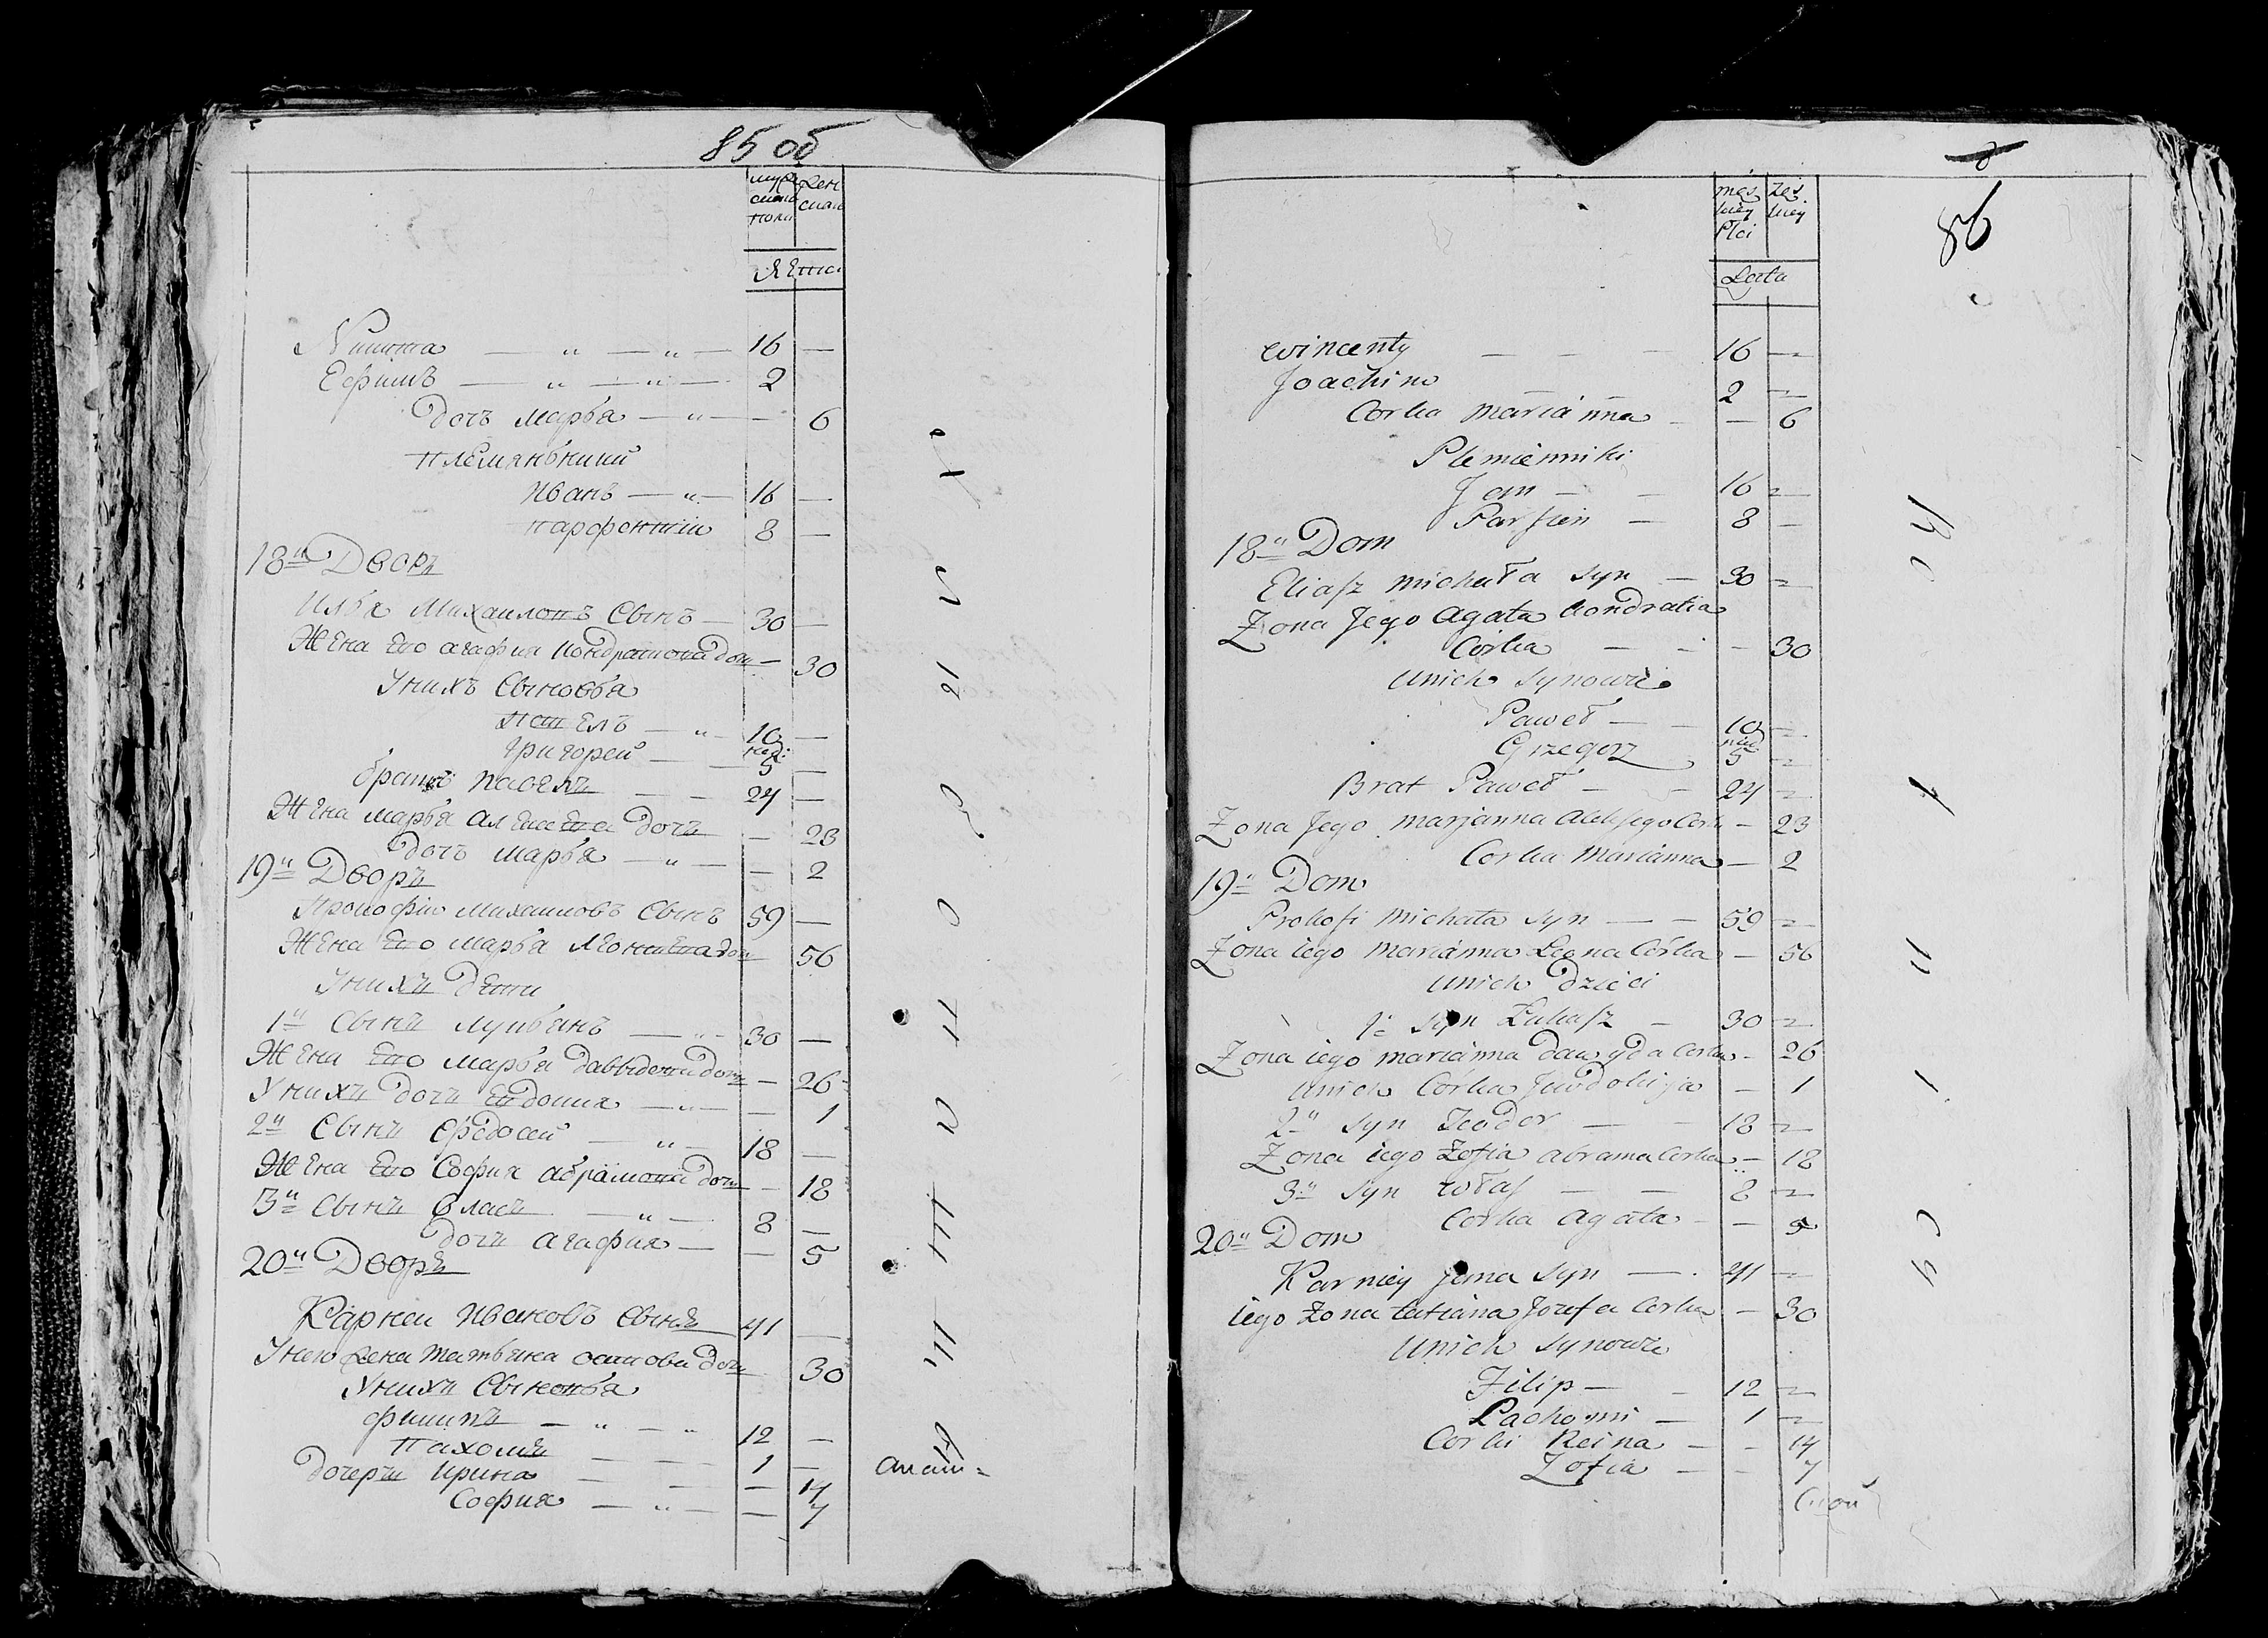 85 об
муже
ска
пола
жен
ска
Лета
Никита — „ — „ — 16 —
Ефимъ — „ — „ — 2
дочъ марья — „ — — 6
племяньники
иванъ — „ — 16 —
парфений 8 —
18й Дворъ
Илья Михаиловъ Сынъ — 30 —
Жена Его агафия кондратова доч — 30
У нихъ Сыновья
Павелъ — „ — 10 —
нед:
григорей — 5 —
братъ павелъ — — 24 —
Жена марья алексеева дочъ — 23
дочъ марья — „ — — 2
19й Дворъ
Прокофiй михаиловъ Сынъ 59 —
Жена Его марья доч 56
У нихъ дети
1й Сынъ лукьянъ — „ — 30 —
Жена Его марья давыдова дочъ — 26
У нихъ дочъ Евдокия — „ — — 1
2й Сынъ Федосей — „ — 18 —
Жена Его София абрамова дочъ — 18
3й Сынъ власъ — „ — 8 —
дочъ агафия — — 5
20й Дворъ
Карней ивановъ Сынъ 41 —
У него жена татьяна осипова дочъ 30
У нихъ Сыновья
филипъ — „ — „ 12 —
пахомъ — — 1 —
дочери ирина — — — 14
София — „ — — 7
86
męs
kiey
Płci
żeń
skiey
Lata
Wincenty — — — 16 —
Joachim 2 —
Corka marianna — — 6
Plemienniki
Jan — — 16 —
Parfien — 8 —
18й Dom
Eliasz michała syn — 30 —
Zona Jego Agata kondratia
Córka — — — 30
Unich Synowie
Paweł — — 10 —
nied:
Grzegorz 5 —
Brat Paweł — — 24 —
Zona Jego marjanna Alexsego Corka — 23
Corka Marianna — 2
19й Dom
Prokofi michała syn — — 59 —
Zona iego marianna Leona Córka — 56
Unich dzieci
1й syn Łukasz — 30 —
Zona iego marianna dawyda Corka — 26
Unich Córka Jewdokija — 1
2й syn Teodor — — 18 —
Zona iego Zofia abrama Corka — 18
3й syn własz — — 8 —
Corka Agata — — 5
20й Dom
Karniey Jana syn — 41 —
iego Zona tatiana Jozefa Corka — 30
Unich Synowie
Filip — — 12 —
Pachomi — 1 —
Corki Reina — — 14
Zofia — — 7